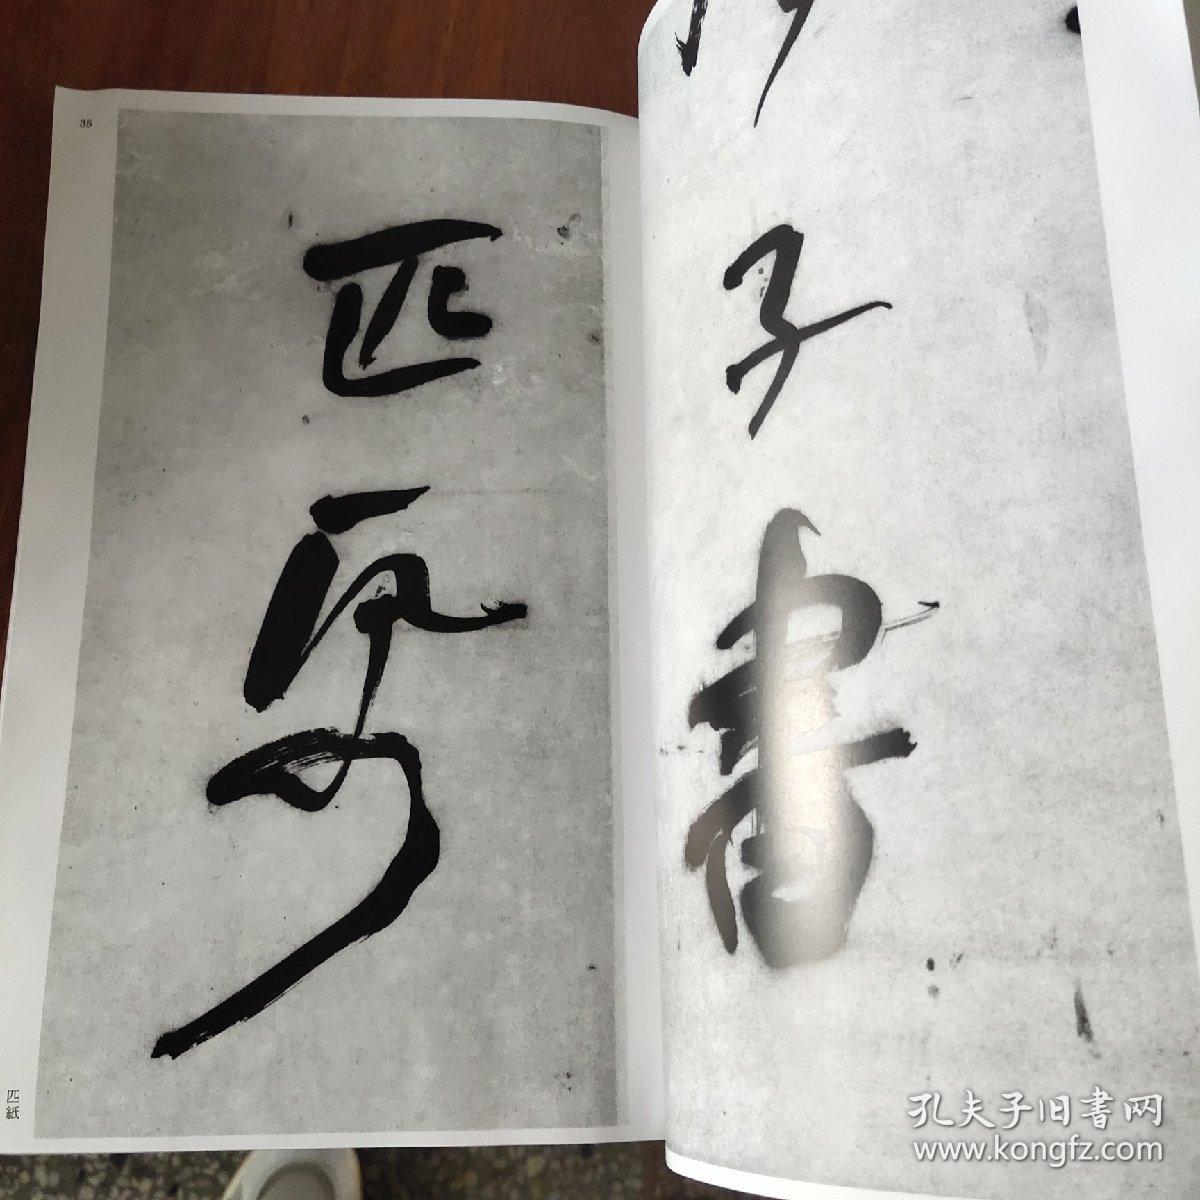 子書
35
匹
匹紙
孔夫子旧書网
www.kongfz.com